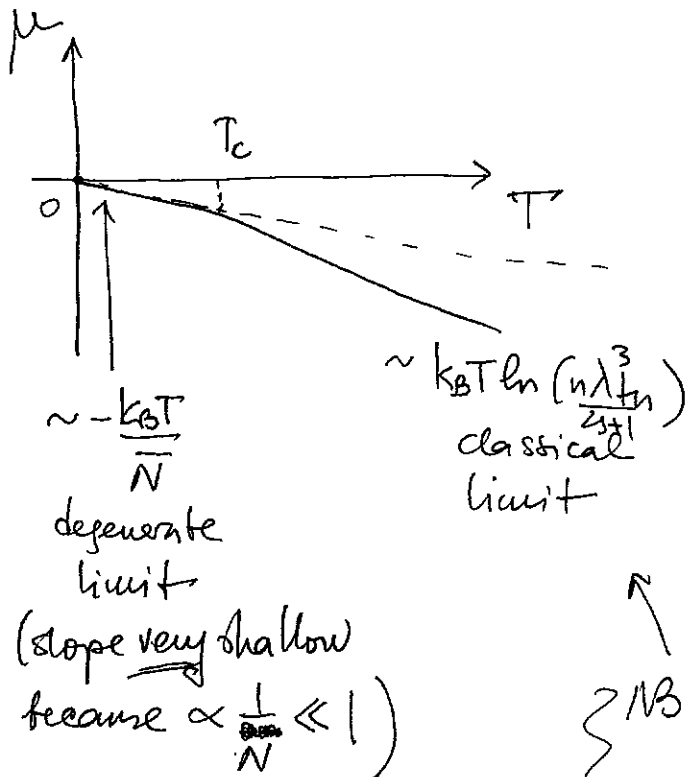 μ
T_c
0
T
~ k_BT ln (nλ³_th / 2s+1)
classical
limit
~ - k_BT / N̅
degenerate
limit
(slope very shallow
because ∝ 1/N ≪ 1)
NB